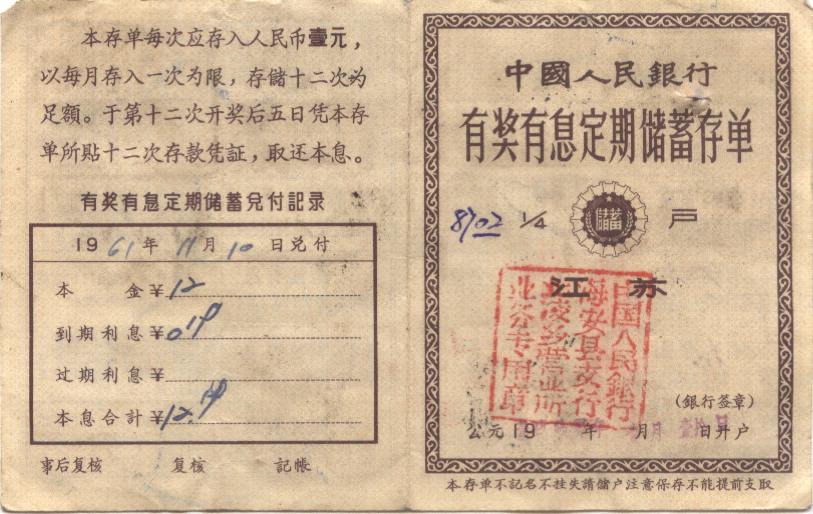 本存单每次应存入人民币壹元，
以每月存入一次为限，存储十二次为
足額。于第十二次开奖后五日凭本存
单所贴十二次存款凭証，取还本息。
有奖有息定期储蓄兑付記录
1961年11月10日兑付
本金￥12
到期利息￥
过期利息￥
本息合計￥12.
事后复核 复核 記帳
中國人民銀行
有奖有息定期储蓄存单
8702 1/4 儲蓄 戸
江苏
中国人民銀行
海安县支行
营业所
业务专用章
(銀行签章)
公元19 年 月 日开户
本存单不記名不挂失請儲户注意保存不能提前支取